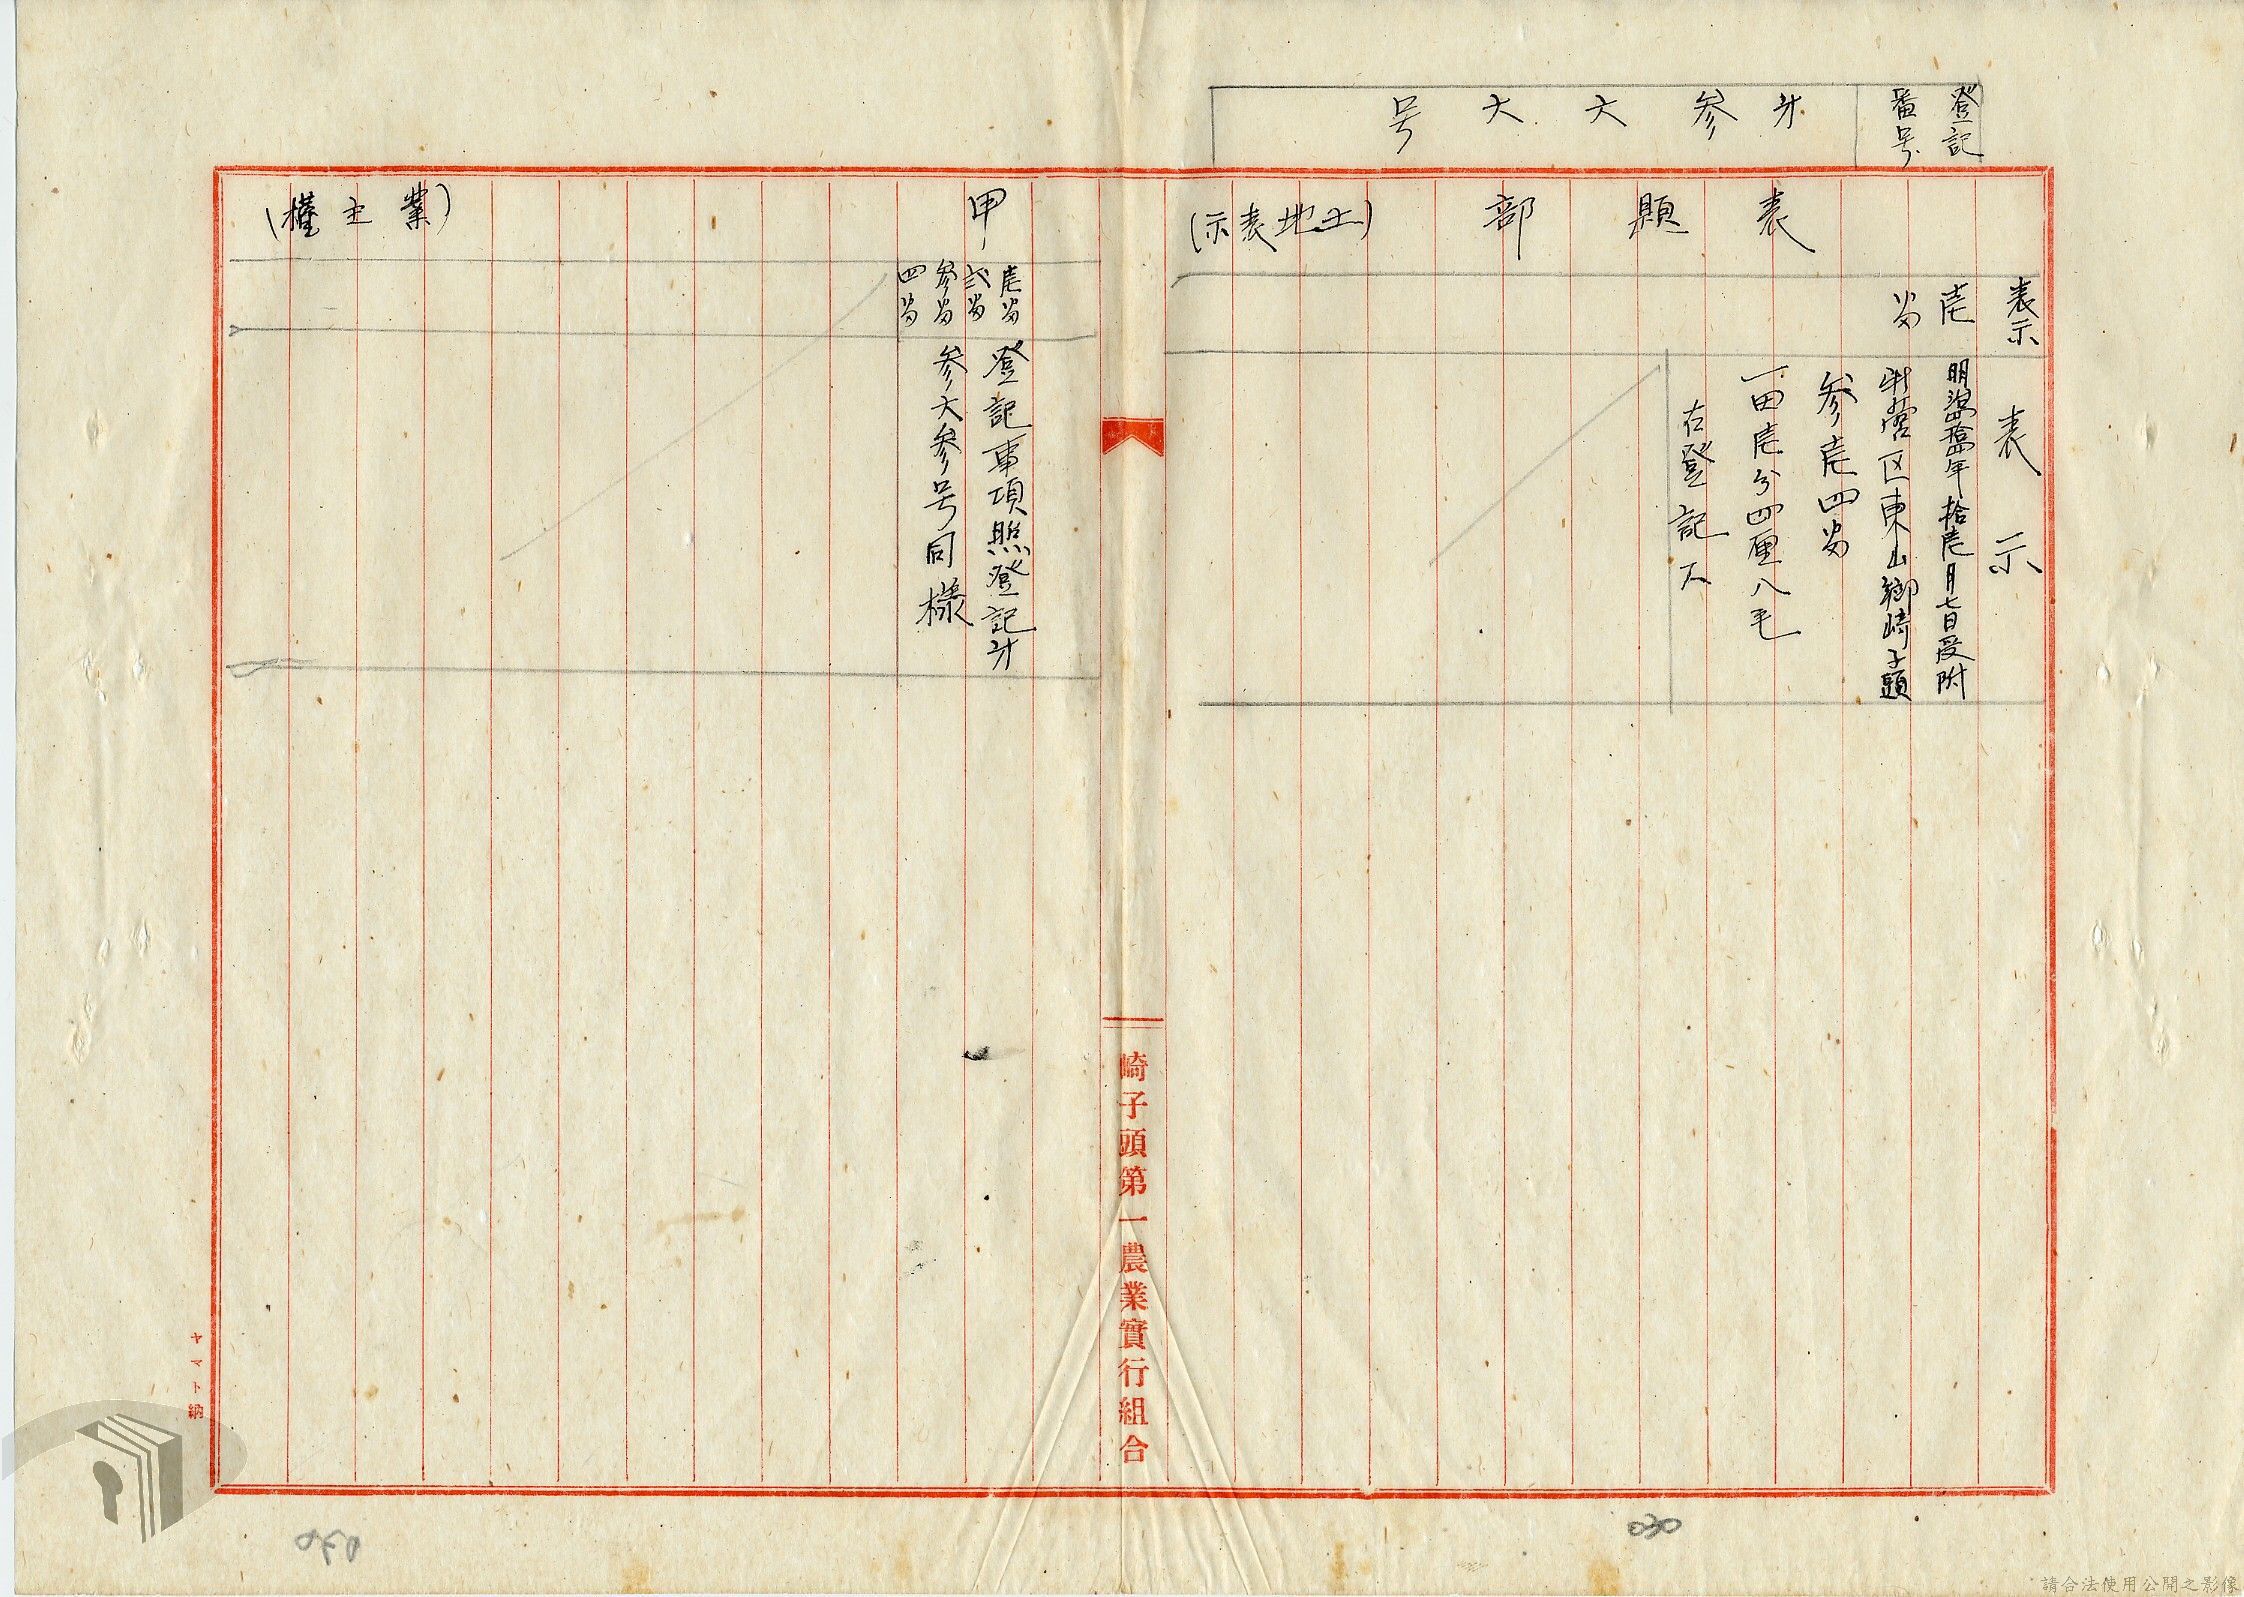 登記
番号
才参六六号
表題部(土地表示)
表示
表示
壱
番
明治四拾四年拾壱月七日受附
蕃区東山鄉崎子頭
参壱四番
一田壱分四厘八毛
右登記ス
甲(業主權)
壱番
弐番
参番
四番
登記事項照登記才
参六参号同樣
崎子頭第一農業實行組合
ヤマト納
030
030
請合法使用公開之影像